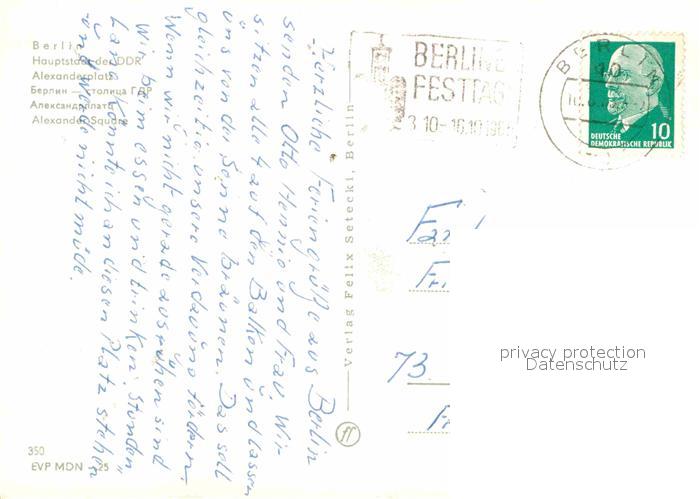 Berlin
Hauptstadt der DDR
Alexanderplatz
Берлин — столица ГДР
Александерплатц
Alexander Square
Herzliche Feriengrüße aus Berlin
senden Otto Hennig und Frau. Wir
sitzen alle 4 auf den Balkon und lassen
uns von der Sonne bräunen. Das soll
gleichzeitig unsere Verdauung fördern.
Wenn wir nicht gerade ausruhen sind
wir beim essen und trinken. Stunden
lang könnte ich an diesen Platz stehen
und werde nicht müde.
350
EVP MDN 25
Verlag Felix Setecki, Berlin
BERLINER
FESTTAGE
3.10-16.10.196
BERLIN
10
DEUTSCHE
DEMOKRATISCHE REPUBLIK
Fr.
73
privacy protection
Datenschutz